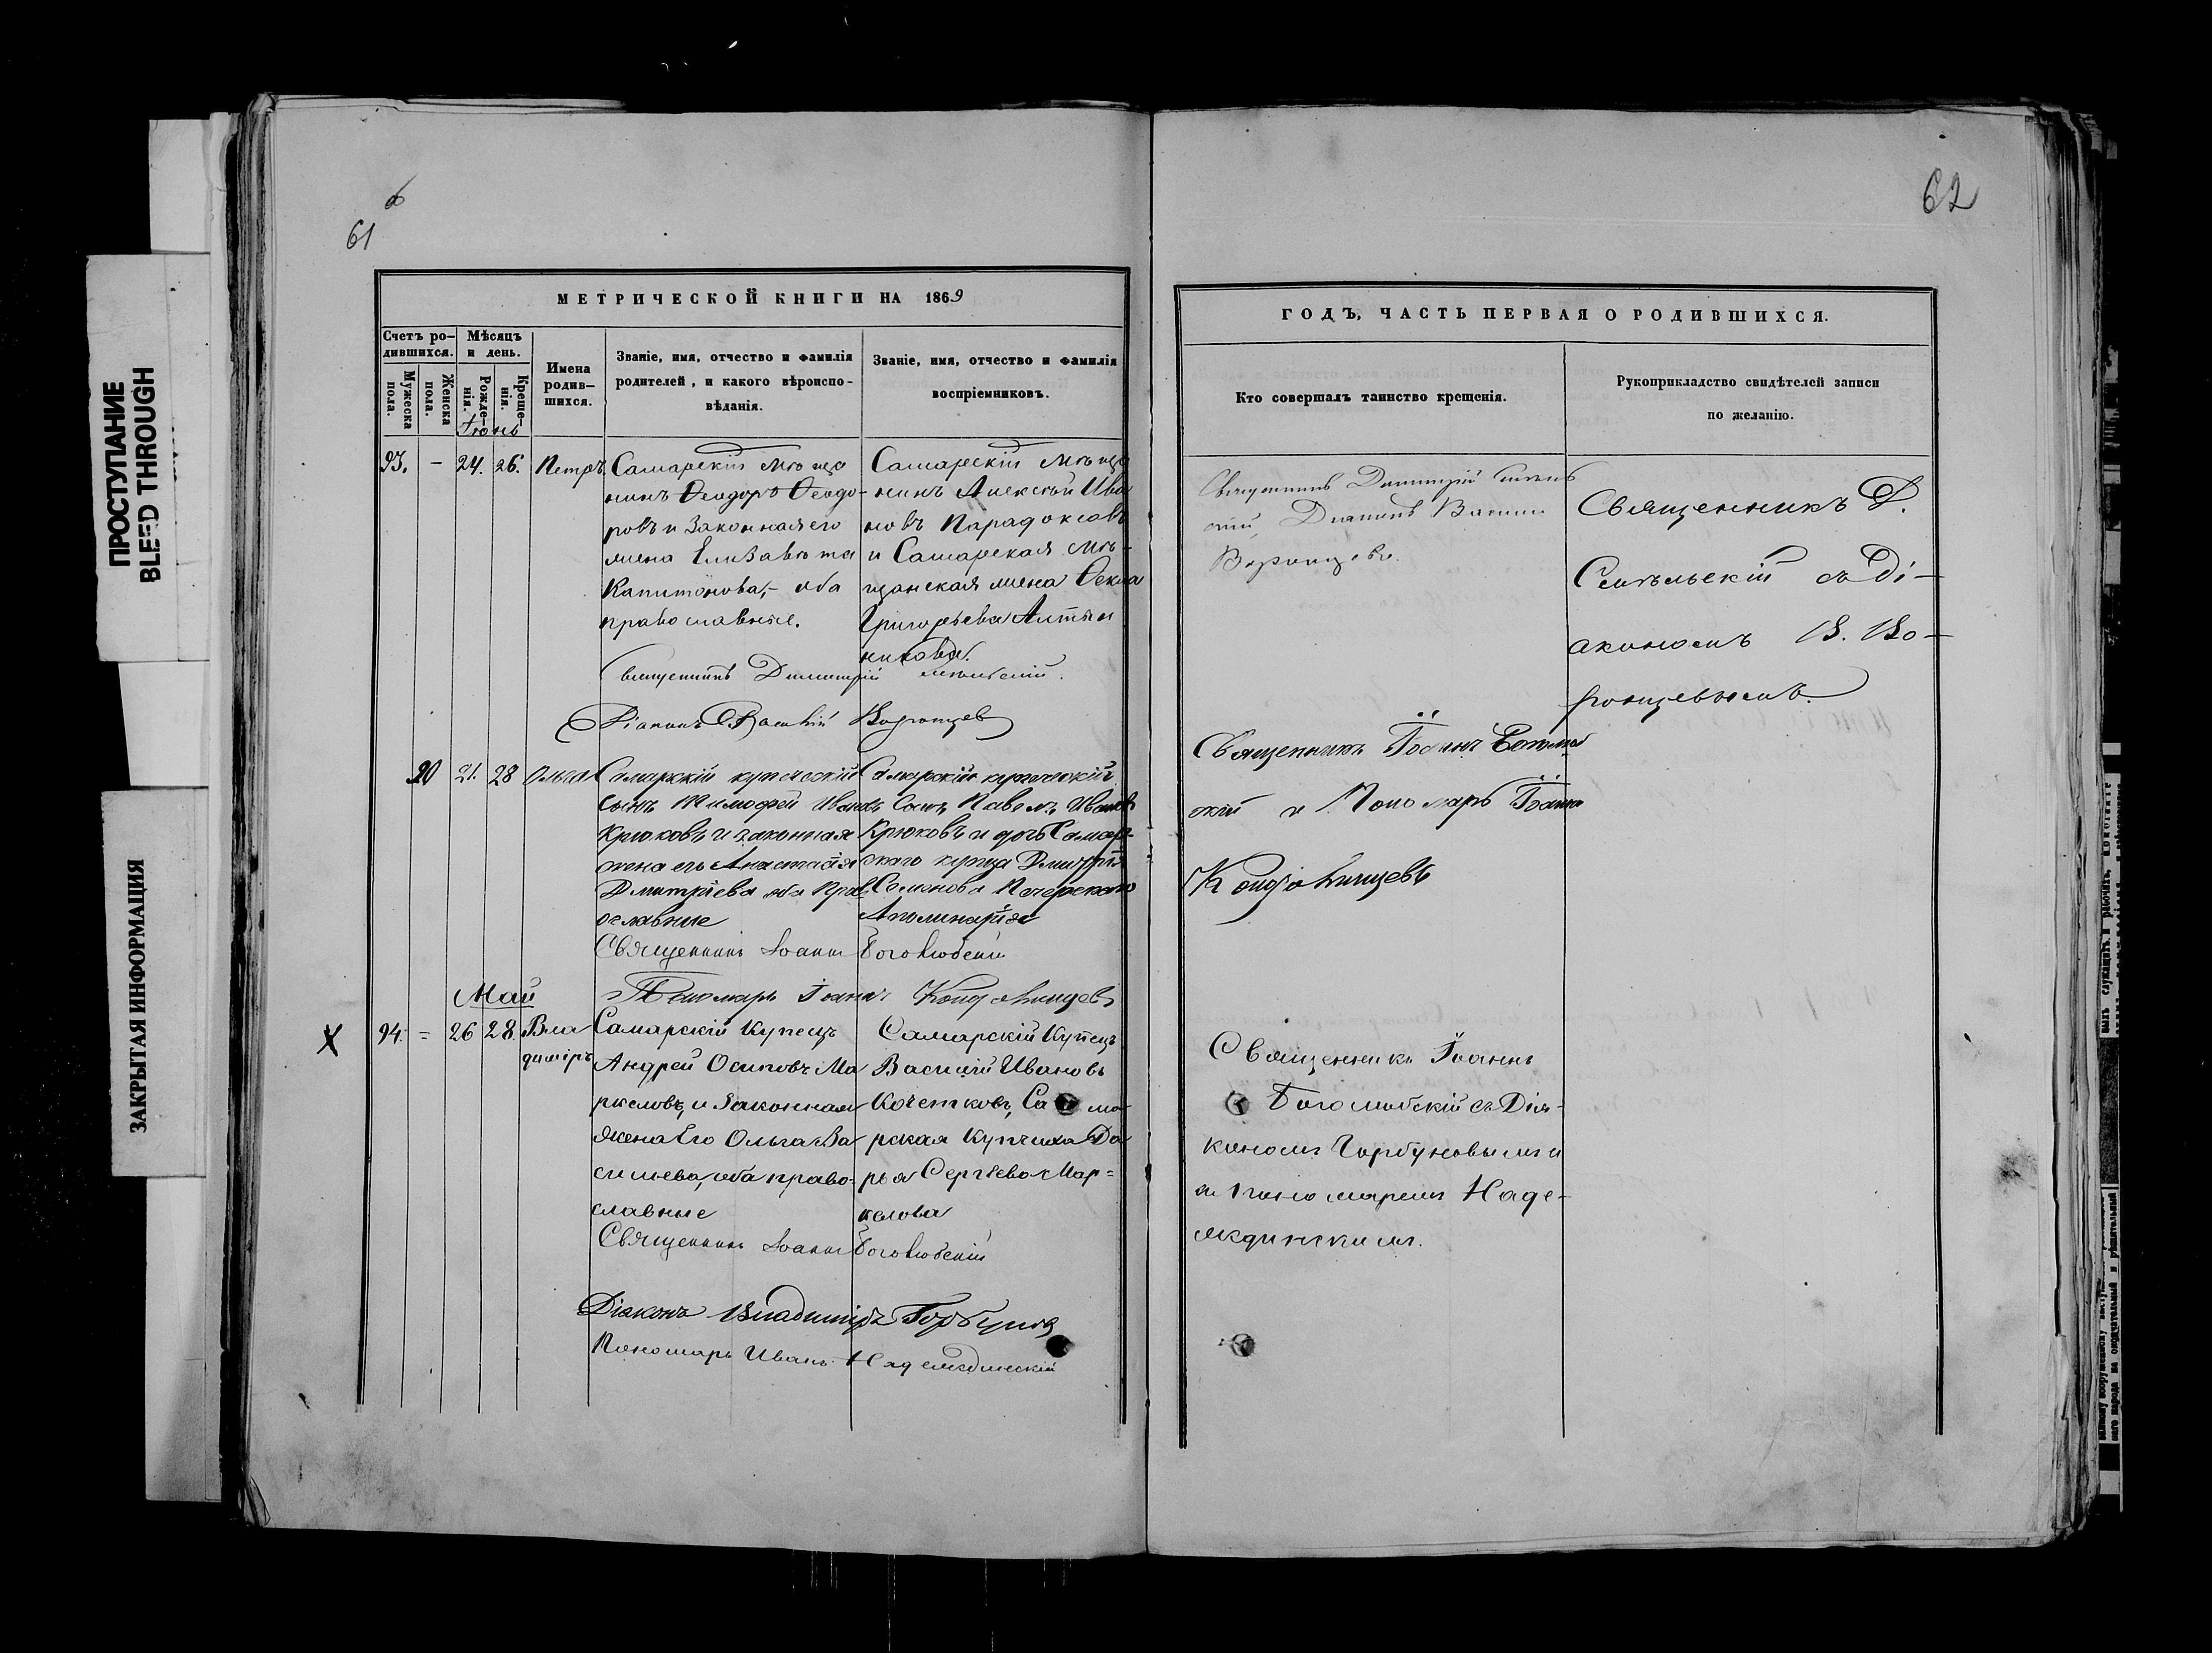 ПРОСТУПАНИЕ
BLEED THROUGH
ЗАКРЫТАЯ ИНФОРМАЦИЯ
61
об
МЕТРИЧЕСКОЙ КНИГИ НА 1869
Счетъ ро-
дившихся.
Мужеска
пола.
Женска
пола.
Мѣсяцъ
и день.
Рожде-
нія.
Креще-
нія.
Імена
родив-
шихся.
Званіе, имя, отчество и фамилія
родителей, и какого вѣроиспо-
вѣданія.
Званіе, имя, отчество и фамилія
воспріемниковъ.
Іюнь
93. - 24. 26. Петръ.
Самарскій мѣща
нинъ Ѳеодоръ Ѳеодо-
ровъ и законная его
жена Елизавѣта
Капитонова, - оба
православные.
Самарскій мѣща
нинъ Алексѣй Ива
новъ Парадоксовъ
и Самарская мѣ-
щанская жена Ѳекла
Григорьева Алтын
никова.
Священникъ Димитрій
Діаконъ Василій Воронцев
20 21. 28 Ольга
Самарскій купеческій
сынъ Тимофей Ивановъ
Крюковъ и законная
жена его Анастасія
Дмитріева оба Прав
ославные
Самарскій купеческій
Сынъ Павелъ Ивановъ
Крюковъ и дочь Самар-
скаго купца Дмитрія
Семенова Печерскаго
Аполинарія
Священникъ Іоаннъ Боголюбскій
Пономарь Іоаннъ
Май
X 94. = 26 28. Вла
диміръ
Самарскій Купецъ
Андрей Осиповъ Ма
ркеловъ, и Законная
жена Его Ольга Ва
сильева, оба право-
славные
Самарскій Купецъ
Василій Ивановъ
Кочетковъ, Са ма-
рская Купчиха Да
рья Сергѣева Мар=
келова
Священникъ Іоаннъ Боголюбскій
Діаконъ Владиміръ Горбуновъ
Пономарь Иванъ Надеждинскій
62
ГОДЪ, ЧАСТЬ ПЕРВАЯ О РОДИВШИХСЯ.
Кто совершалъ таинство крещенія.
Рукоприкладство свидѣтелей записи
по желанію.
Священникъ Димитрій
Діаконъ Василій
Воронцевъ.
Священникъ Д.
съ Ді-
акономъ В. Во-
ронцевымъ
Священникъ Іоаннъ Боголюб
скій и Пономарь Іоаннъ
Священникъ Іоаннъ
Боголюбскій съ Діа-
кономъ Горбуновымъ и
Пономаремъ Наде-
ждинскимъ.